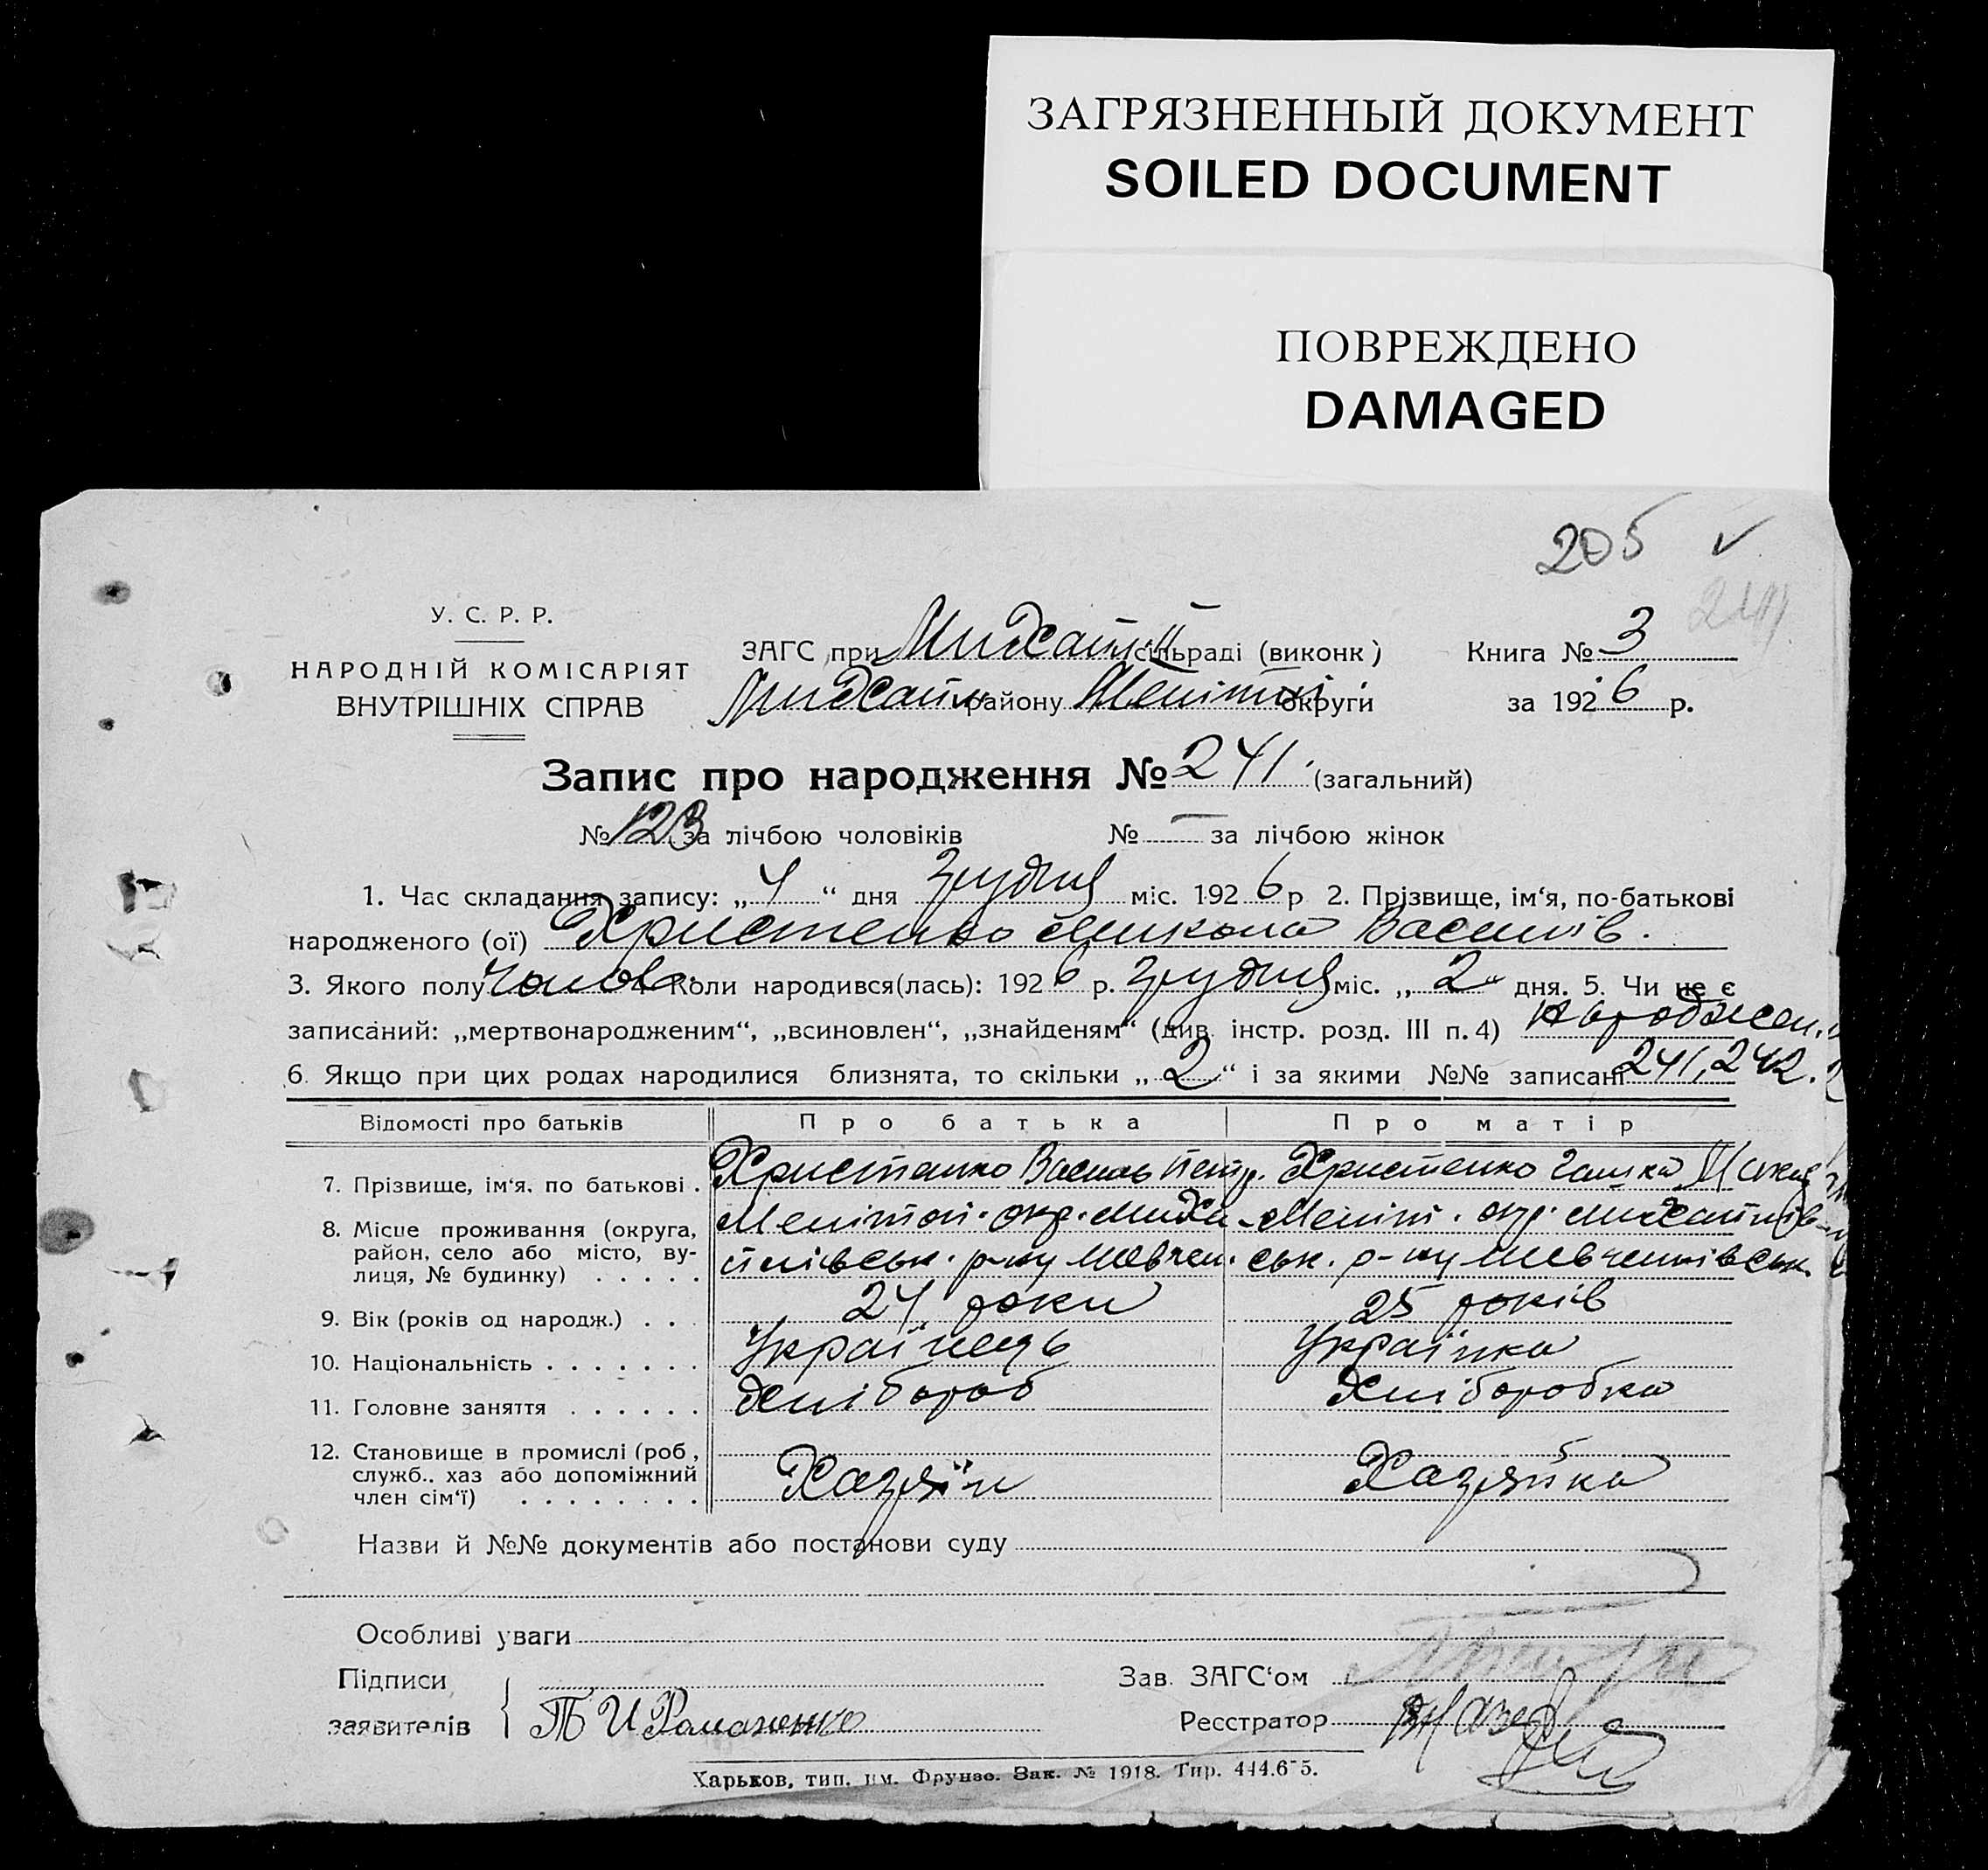 ЗАГРЯЗНЕННЫЙ ДОКУМЕНТ
SOILED DOCUMENT
ПОВРЕЖДЕНО
DAMAGED
205 ✓
241
У. С. Р. Р.
НАРОДНІЙ КОМІСАРІЯТ
ВНУТРІШНІХ СПРАВ
ЗАГС при Михайл сільраді (виконк)
Михайл району Меліт округи
Книга № 3
за 1926 р.
Запис про народження № 241 (загальний)
№ 123 за лічбою чоловіків № — за лічбою жінок
1. Час складання запису: „4“ дня грудня міс. 1926 р 2. Прізвище, ім‘я, по-батькові
народженого (ої) Христенко Микола Василів.
3. Якого полу Чолов. 4 Коли народився(лась): 1926 р. грудня міс. „2“ дня. 5. Чи не є
записаний: „мертвонародженим“, „всиновлен“, „знайденям“ (див. інстр. розд. III п. 4)
6. Якщо при цих родах народилися близнята, то скільки „2“ і за якими №№ записані 241, 242.
Відомості про батьків Про батька Про матір
7. Прізвище, ім‘я, по батькові . Христенко Василь Петр. Христенко Гашка
8. Місце проживання (округа, район, село або місто, вулиця, № будинку) . . . . .
Меліт. окр. Миха
йлівськ. р-ну Шевчен.
Меліт. окр. Михайлів-
ськ. р-ну Шевченківськ.
9. Вік (років од народж.) . . . 24 роки 25 років
10. Національність . . . . . . . Українець Українка
11. Головне заняття . . . . . . Хлібороб Хліборобка
12. Становище в промислі (роб, служб., хаз або допоміжний член сім‘ї) . . . . . . . . Хазяїн Хазяйка
Назви й №№ документів або постанови суду
Особливі уваги
Підписи
заявителів
Т И Романенко
Зав. ЗАГС‘ом
Ресстратор
Харьков, тип. им. Фрунзе. Зак. № 1918. Тир. 444.675.